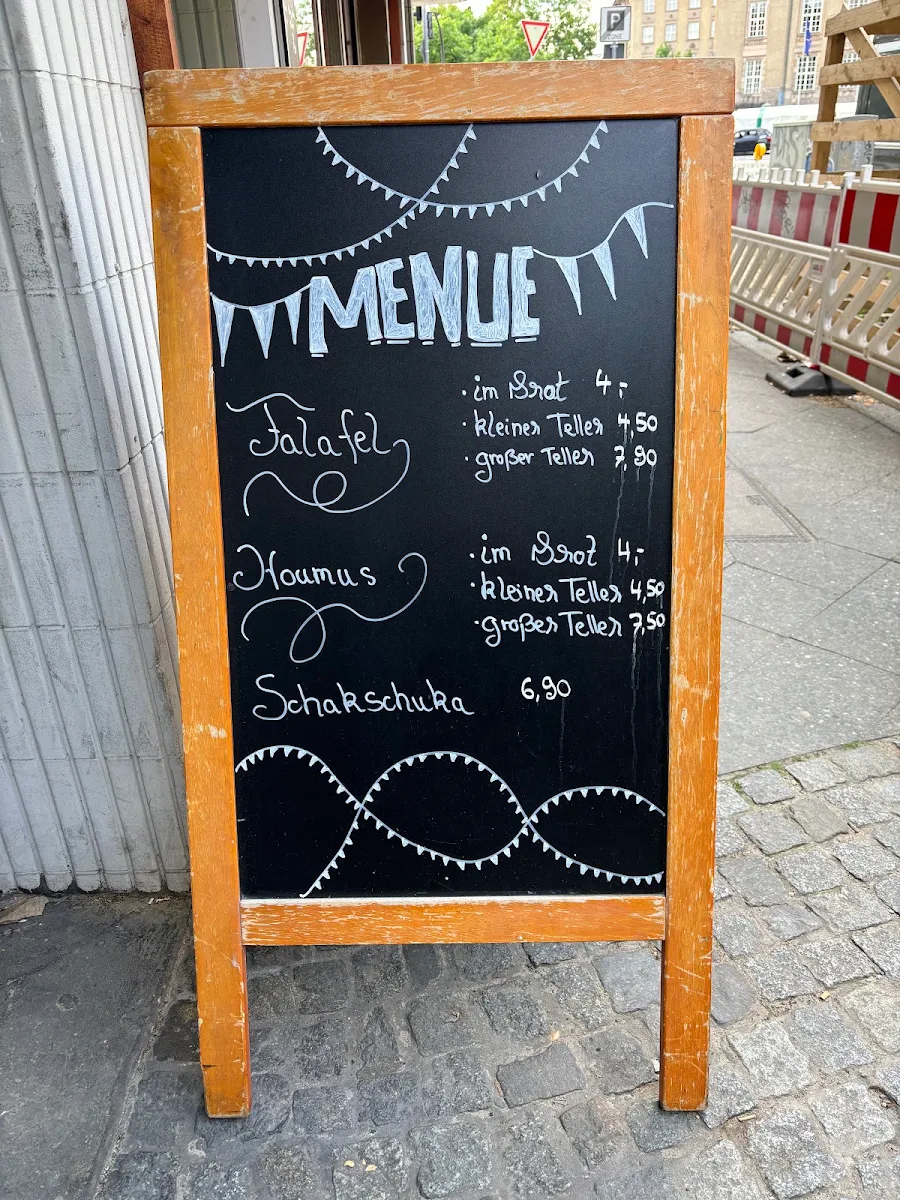 P
ZONE
MENUE
Falafel
· im Brot 4,-
· kleiner Teller 4,50
· großer Teller 7,90
Houmus
· im Brot 4,-
· kleiner Teller 4,50
· großer Teller 7,50
Schakschuka 6,90